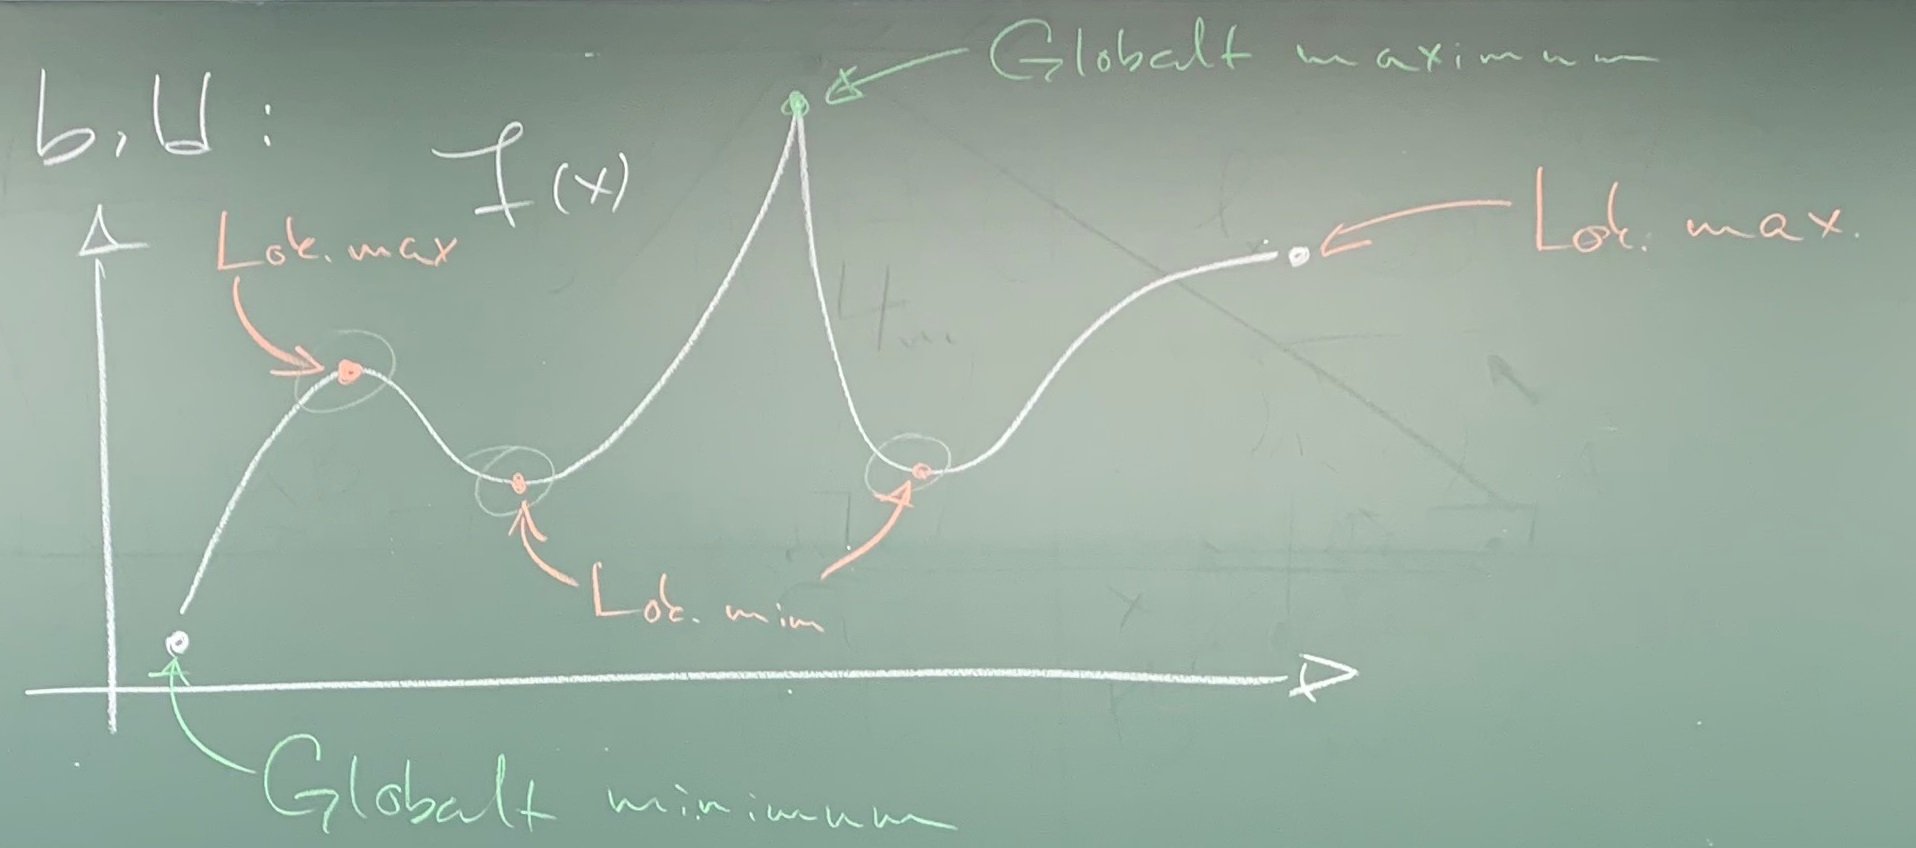 Globalt maximum
f(x)
Lok. max
Lok. max.
Lok. min
Globalt minimum